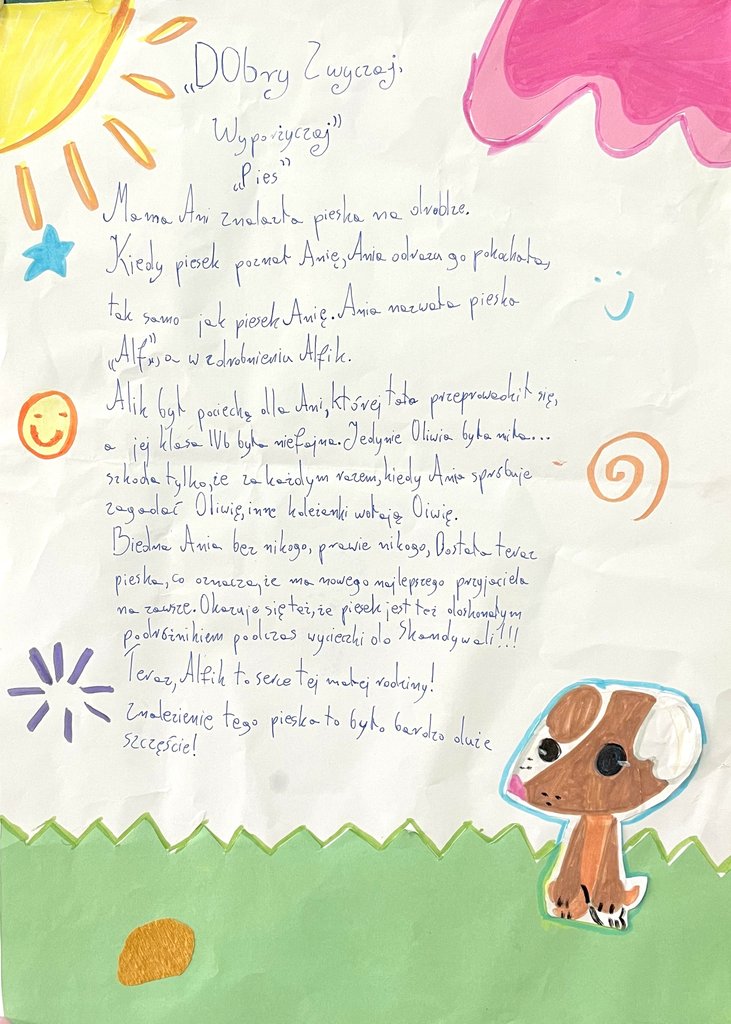 „DObry Zwyczaj,
Wypożyczaj”
„Pies”
Mama Ani znalazła pieska na drodze.
Kiedy piesek poznał Anię, Ania odrazu go pokochała,
tak samo jak piesek Anię. Ania nazwała pieska
„Alf”, a w zdrobnieniu Alfik.
Alik był pociechą dla Ani, której tata przeprowadził się,
a jej klasa IVb była niefajna. Jedynie Oliwia była miła...
szkoda tylko, że za każdym razem, kiedy Ania spróbuje
zagadać Oliwię, inne koleżanki wołają Oiwię.
Biedna Ania bez nikogo, prawie nikogo, Dostała teraz
pieska, co oznacza, że ma nowego najlepszego przyjaciela
na zawsze. Okazuje się też, że piesek jest też doskonałym
podróżnikiem podczas wycieczki do Skandywali!!!
Teraz, Alfik to serce tej małej rodziny!
Znalezienie tego pieska to było bardzo duże
szczęście!